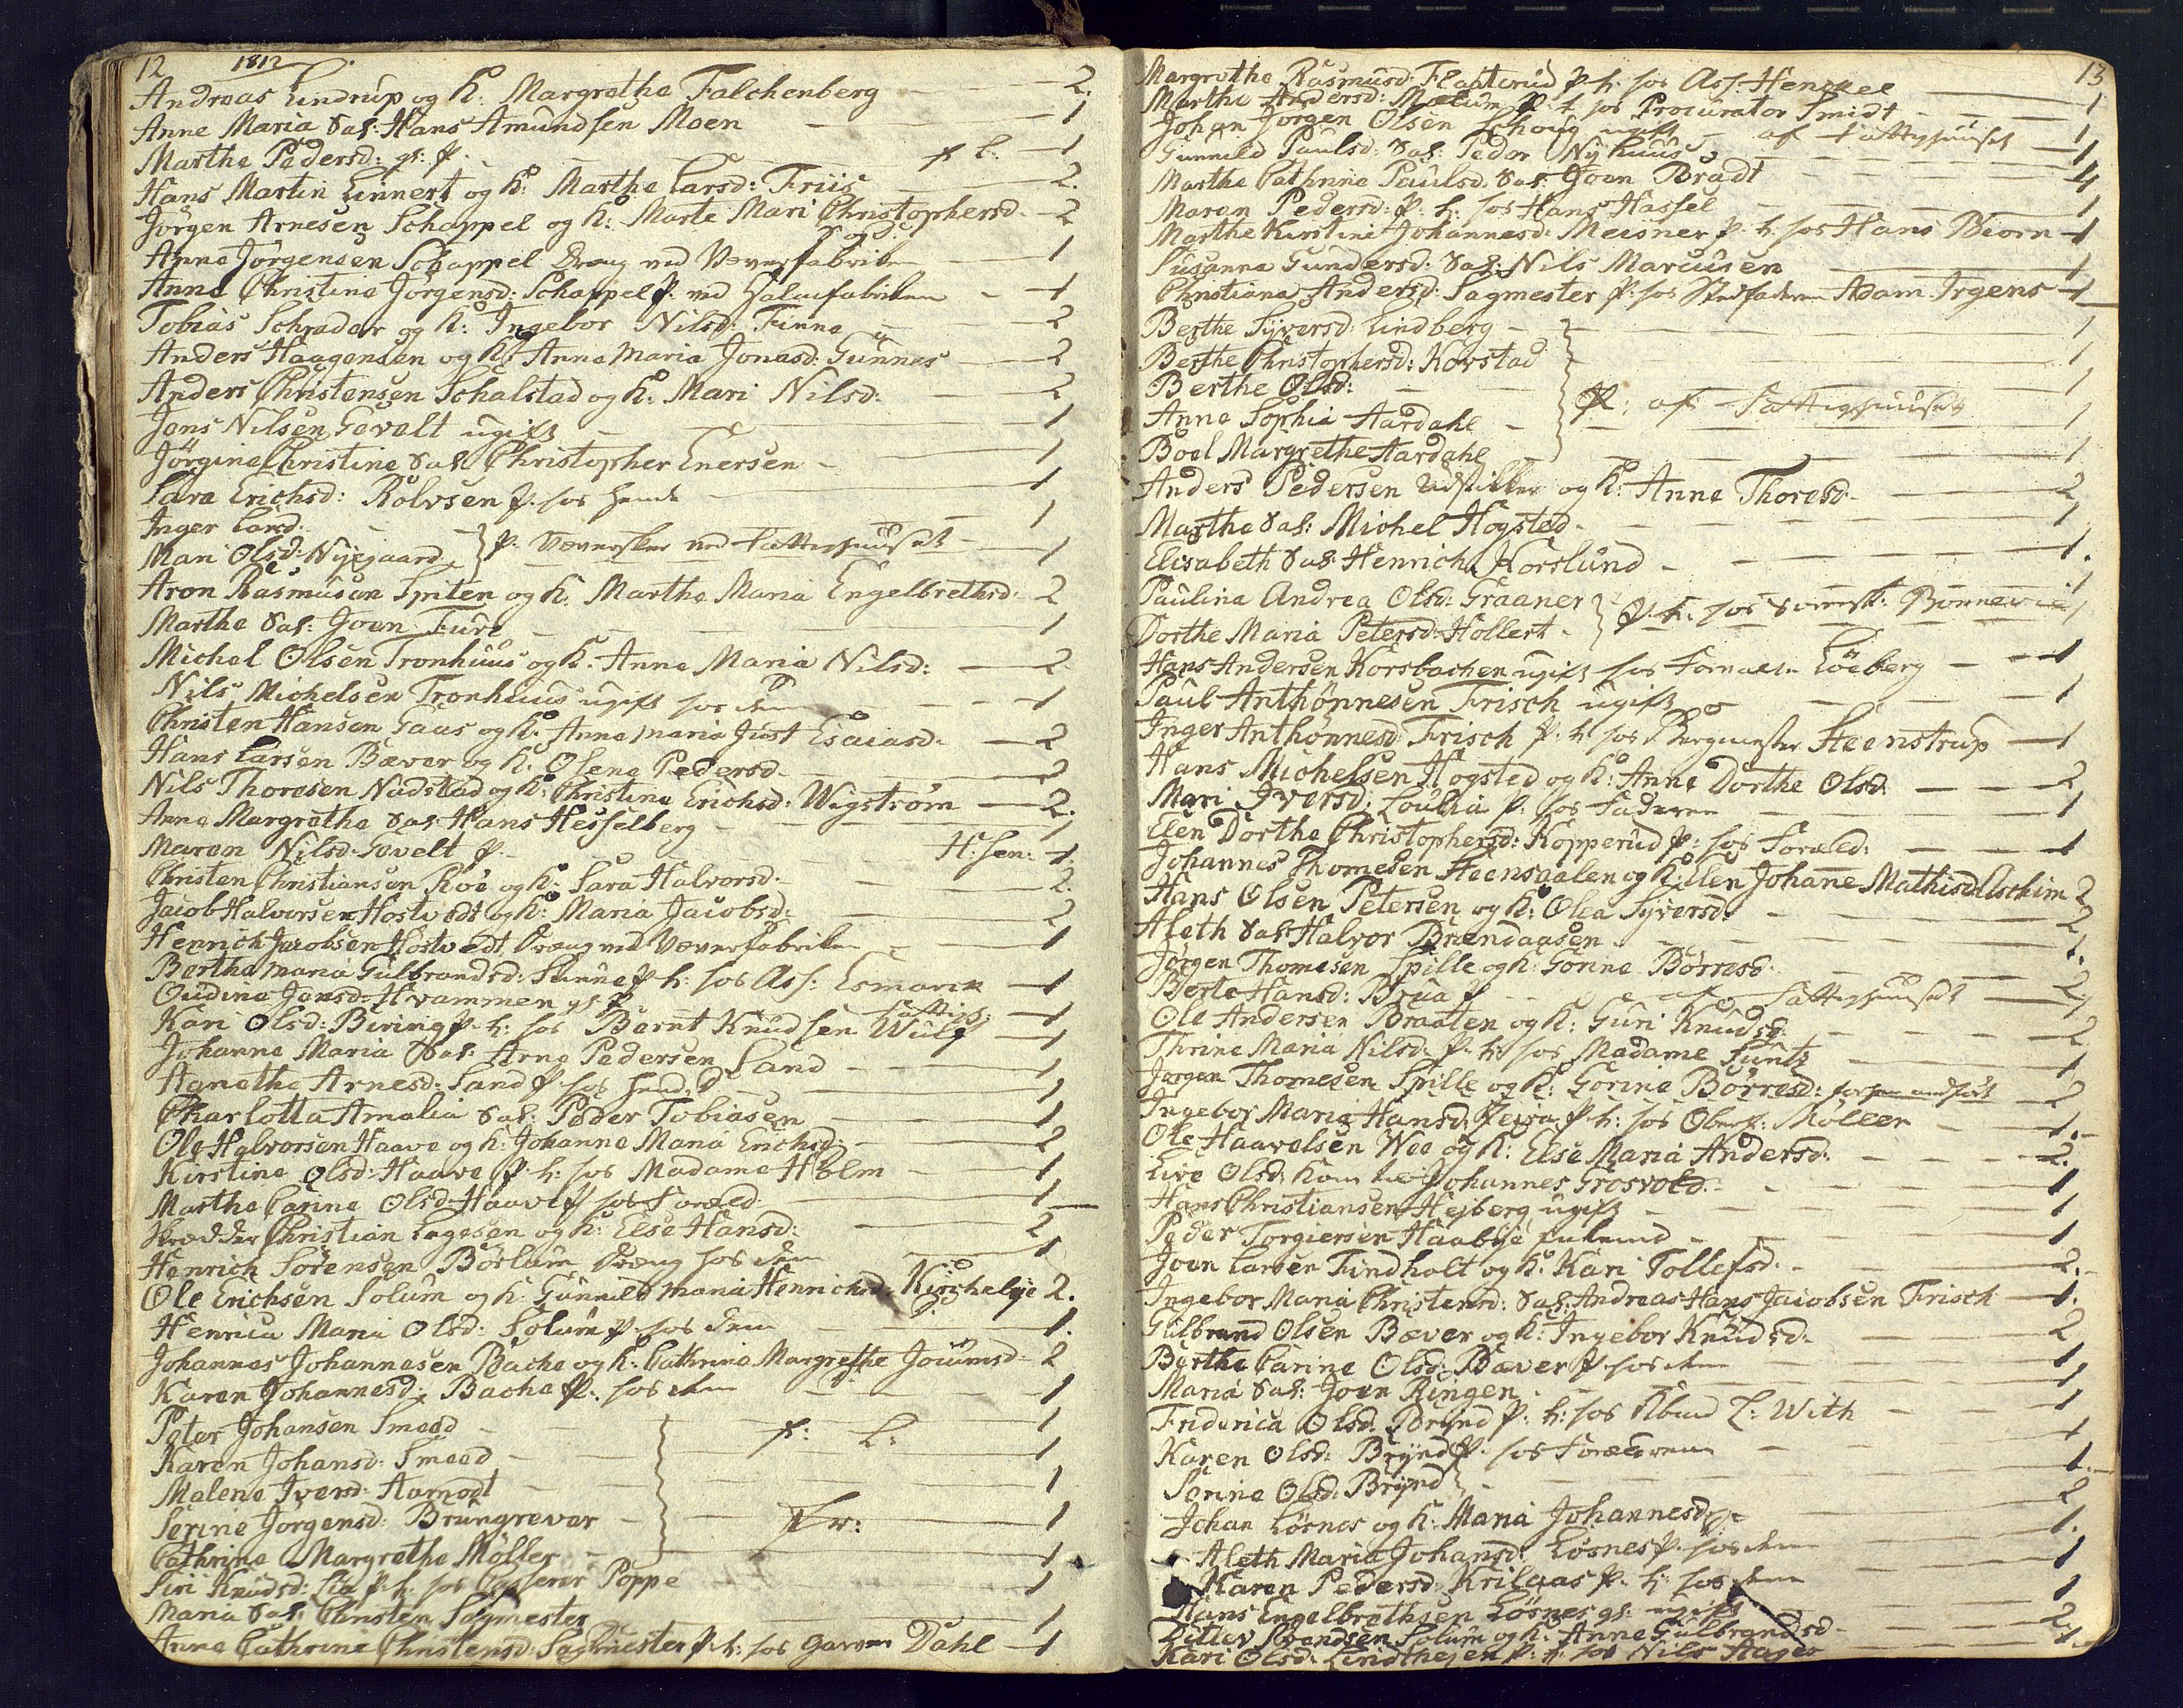 12 1812
Andreas Lindrup og K: Margrethe Falchenberg - 2.
Anne Maria Sal: Hans Amundsen Moen - 1
Marthe Pedersd: gl: P. - f L: - 1
Hans Martin Linnert og K: Marthe Larsd: Friis - 2.
Jörgen Arnesen Schappel og K: Marte Mari Christophersd. - 2
Anne Jörgensen Schappel Dreng ved Væverfabriken - 1
Anne Christine Jörgensd: Schappel P. ved - 1
Tobias Schrader og K: Ingebor Nilsd: Finne - 2
Anders Haagensen og K: Anne Maria Jonasd: Gunnes - 2
Anders Christensen Schalstad og K: Mari Nilsd: - 2
Jens Nilsen Gevelt ugift - 1
Jörgine Christine Sal: Christopher Enersen - 1
Sara Erichsd: Rolvsen P. hos hende - 1
Inger Larsd. - 1
Mari Olsd: Nyegaard } P. Væversker ved Fattighuuset - 1
Aron Rasmusen Spiten og K: Marthe Maria Engelbrethsd: 2
Marthe Sal: Joen Fure - 1
Michel Olsen Tronhuus og K: Anne Maria Nilsd: - 2
Nils Michelsen Tronhuus ugift hos dem - 1
Christen Hansen Gaas og K: Anne Maria Just Esaiasd: - 2
Hans Larsen Bæver og K: Olene Pedersd. - 2
Nils Thoresen Nadstad og K: Christine Erichsd: Wigström - 2.
Anne Margrethe Sal: Hans Hesselberg - 1
Maren Nilsd: Gevelt P. - H: sen: 1.
Christen Christiansen Röe og K: Sara Halvorsd: - 2.
Jacob Halvorsen Hostvedt og K: Maria Jacobsd: - 2
Henrich Jacobsen Hostvedt Dreng ved Væverfabriken - 1
Berthe Maria Gulbrandsd: Sunne P h: hos Ass: Esmarck - 1
Oudine Jansd: Hvammen gl: P. - 1
Kari Olsd: Biring P. h: hos Bernt Knudsen Wulf - 1
Johanne Maria Sal: Arne Pedersen Sand - 1
Agnethe Arnesd: Sand P. hos hende - 1
Charlotta Amalia Sal: Peder Tobiasen - 1
Ole Halvorsen Haave og K: Johanne Maria Erichsd: - 2
Kirstine Olsd: Haave P. h: hos Madame Holm - 1
Marthe Carine Olsd: Haave P hos Foræld. - 1
Skrædder Christian Lagesen og K: Else Hansd: - 2
Henrich Sörensen Börlum Dreng hos dem - 1
Ole Erichsen Solum og K: Gunnild Maria Henrichsd: Kirchelye 2.
Henrica Maria Olsd: Solum P. hos dem - 1.
Johannes Johannesen Bache og K: Cathrine Margrethe Joeumsd - 2
Karen Johannesd: Bache P: hos dem - 1
Peter Johansen Smeed - 1
Karen Johansd: Smeed - f: L: - 1
Malene Iversd: Aamodt - 1
Serine Jörgensd: Brungrever - Fr: 1
Cathrine Margrethe Möller - 1
Siri Knudsd: Lia P. h: hos Casserer Poppe - 1
Maria Sal: Christen Sagmester - 1
Anne Cathrine Christensd: Sagmester P. h: hos Garver Dahl - 1
13
Margrethe Rasmusd: Flaatterud P. h: hos Ass: Henckel - 1
Marthe Andersd: Mælum P: h hos Procurator Smidt - 1
Johan Jörgen Olsen Schoug ugift - af Fattighuuset 1
Gunnild Paulsd: Sal: Peder Nyhuus - 1
Marthe Cathrine Paulsd. Sal: Joen Bradt - 1
Maren Pedersd: P. h: hos Hans Hassel - 1
Marthe Kirstine Johannesd: Meisner P. h: hos Hans Biorn - 1
Susanne Gundersd: Sal: Nils Marcusen - 1
Christiana Andersd: Sagmester P. hos Stedfaderen Adam Irgens - 1
Berthe Syversd: Lindberg - 1
Berthe Christophersd: Korstad - 1
Berthe Olsd: - 1
Anne Sophia Aardahl - P: af Fattighuuset - 1
Boel Margrethe Aardahl - 1
Anders Pedersen Udstikker og K: Anne Thoresd. - 2
Marthe Sal: Michel Hogsted - 1
Elisabeth Sal: Henrich Korslund - 1.
Pauline Andrea Olsd: Graaner - 1
Dorthe Maria Petersd: Hollert - P. h: hos - 1
Hans Andersen Korsbachen ugift hos Löeberg - 1
Paul Anthönnesen Frisch ugift - 1
Inger Anthönnesd: Frisch P. h hos Bergmester Steenstrup - 1
Hans Michelsen Hogsted og K: Anne Dorthe Olsd. - 2
Mari Iversd: Loulia P. hos Faderen - 1
Elen Dorthe Christophersd: Kopperud P: hos Foræld: - 1
Johannes Thomesen Steensaalen og K: Elen Johanne Mathisd: Aschim 2
Hans Olsen Petersen og K: Olea Syversd: - 2
Aleth Sal: Halvor Brændaasen - 1.
Jörgen Thomesen Spille og K: Gorine Börresd. - 2
Berte Hansd: Brua P - af Fattighuuset - 1
Ole Andersen Braaten og K: Guri Knudsd. - 2
Thrine Maria Nilsd: P. h: hos Madame Funtz - 1
Jörgen Thomesen Spille og K: Gorine Börresd: - 2
Ingebor Maria Hansd: P. h: hos Oberf: Möller - 1.
Ole Haavelsen Wee og K: Else Maria Andersd. - 2.
Live Olsd: Johannes Grosvold. - 1
Hans Christiansen Hejberg ugift - 1
Peder Torgiersen Haabye - 1
Joen Larsen Findholt og K: Kari Tollefsd. - 2.
Ingebor Maria Christensd: Sal: Andreas Hans Jacobsen Frisch - 1.
Gulbrand Olsen Bæver og K: Ingebor Knudsd. - 2
Berthe Carine Olsd: Bæver P. hos dem - 1
Maria Sal: Joen Ringen - 1
Friderica Olsd: Brynd P. h: hos L: With - 1
Karen Olsd: Brynd P. hos Forældrene - 1
Serine Olsd: Brynd - 1.
Johan Lösnes og K: Maria Johannesd: - 2
Aleth Maria Johansd: Lösnes P. hos dem - 1.
Karen Pedersd: Krilaas P. h: hos dem - 1
Hans Engelbrethsen Lösnes gl: ugift - 1
Ditlev Svendsen Solum og K: Anne Gulbrandsd - 2.
Kari Olsd: P: h: hos Nils Hager - 1